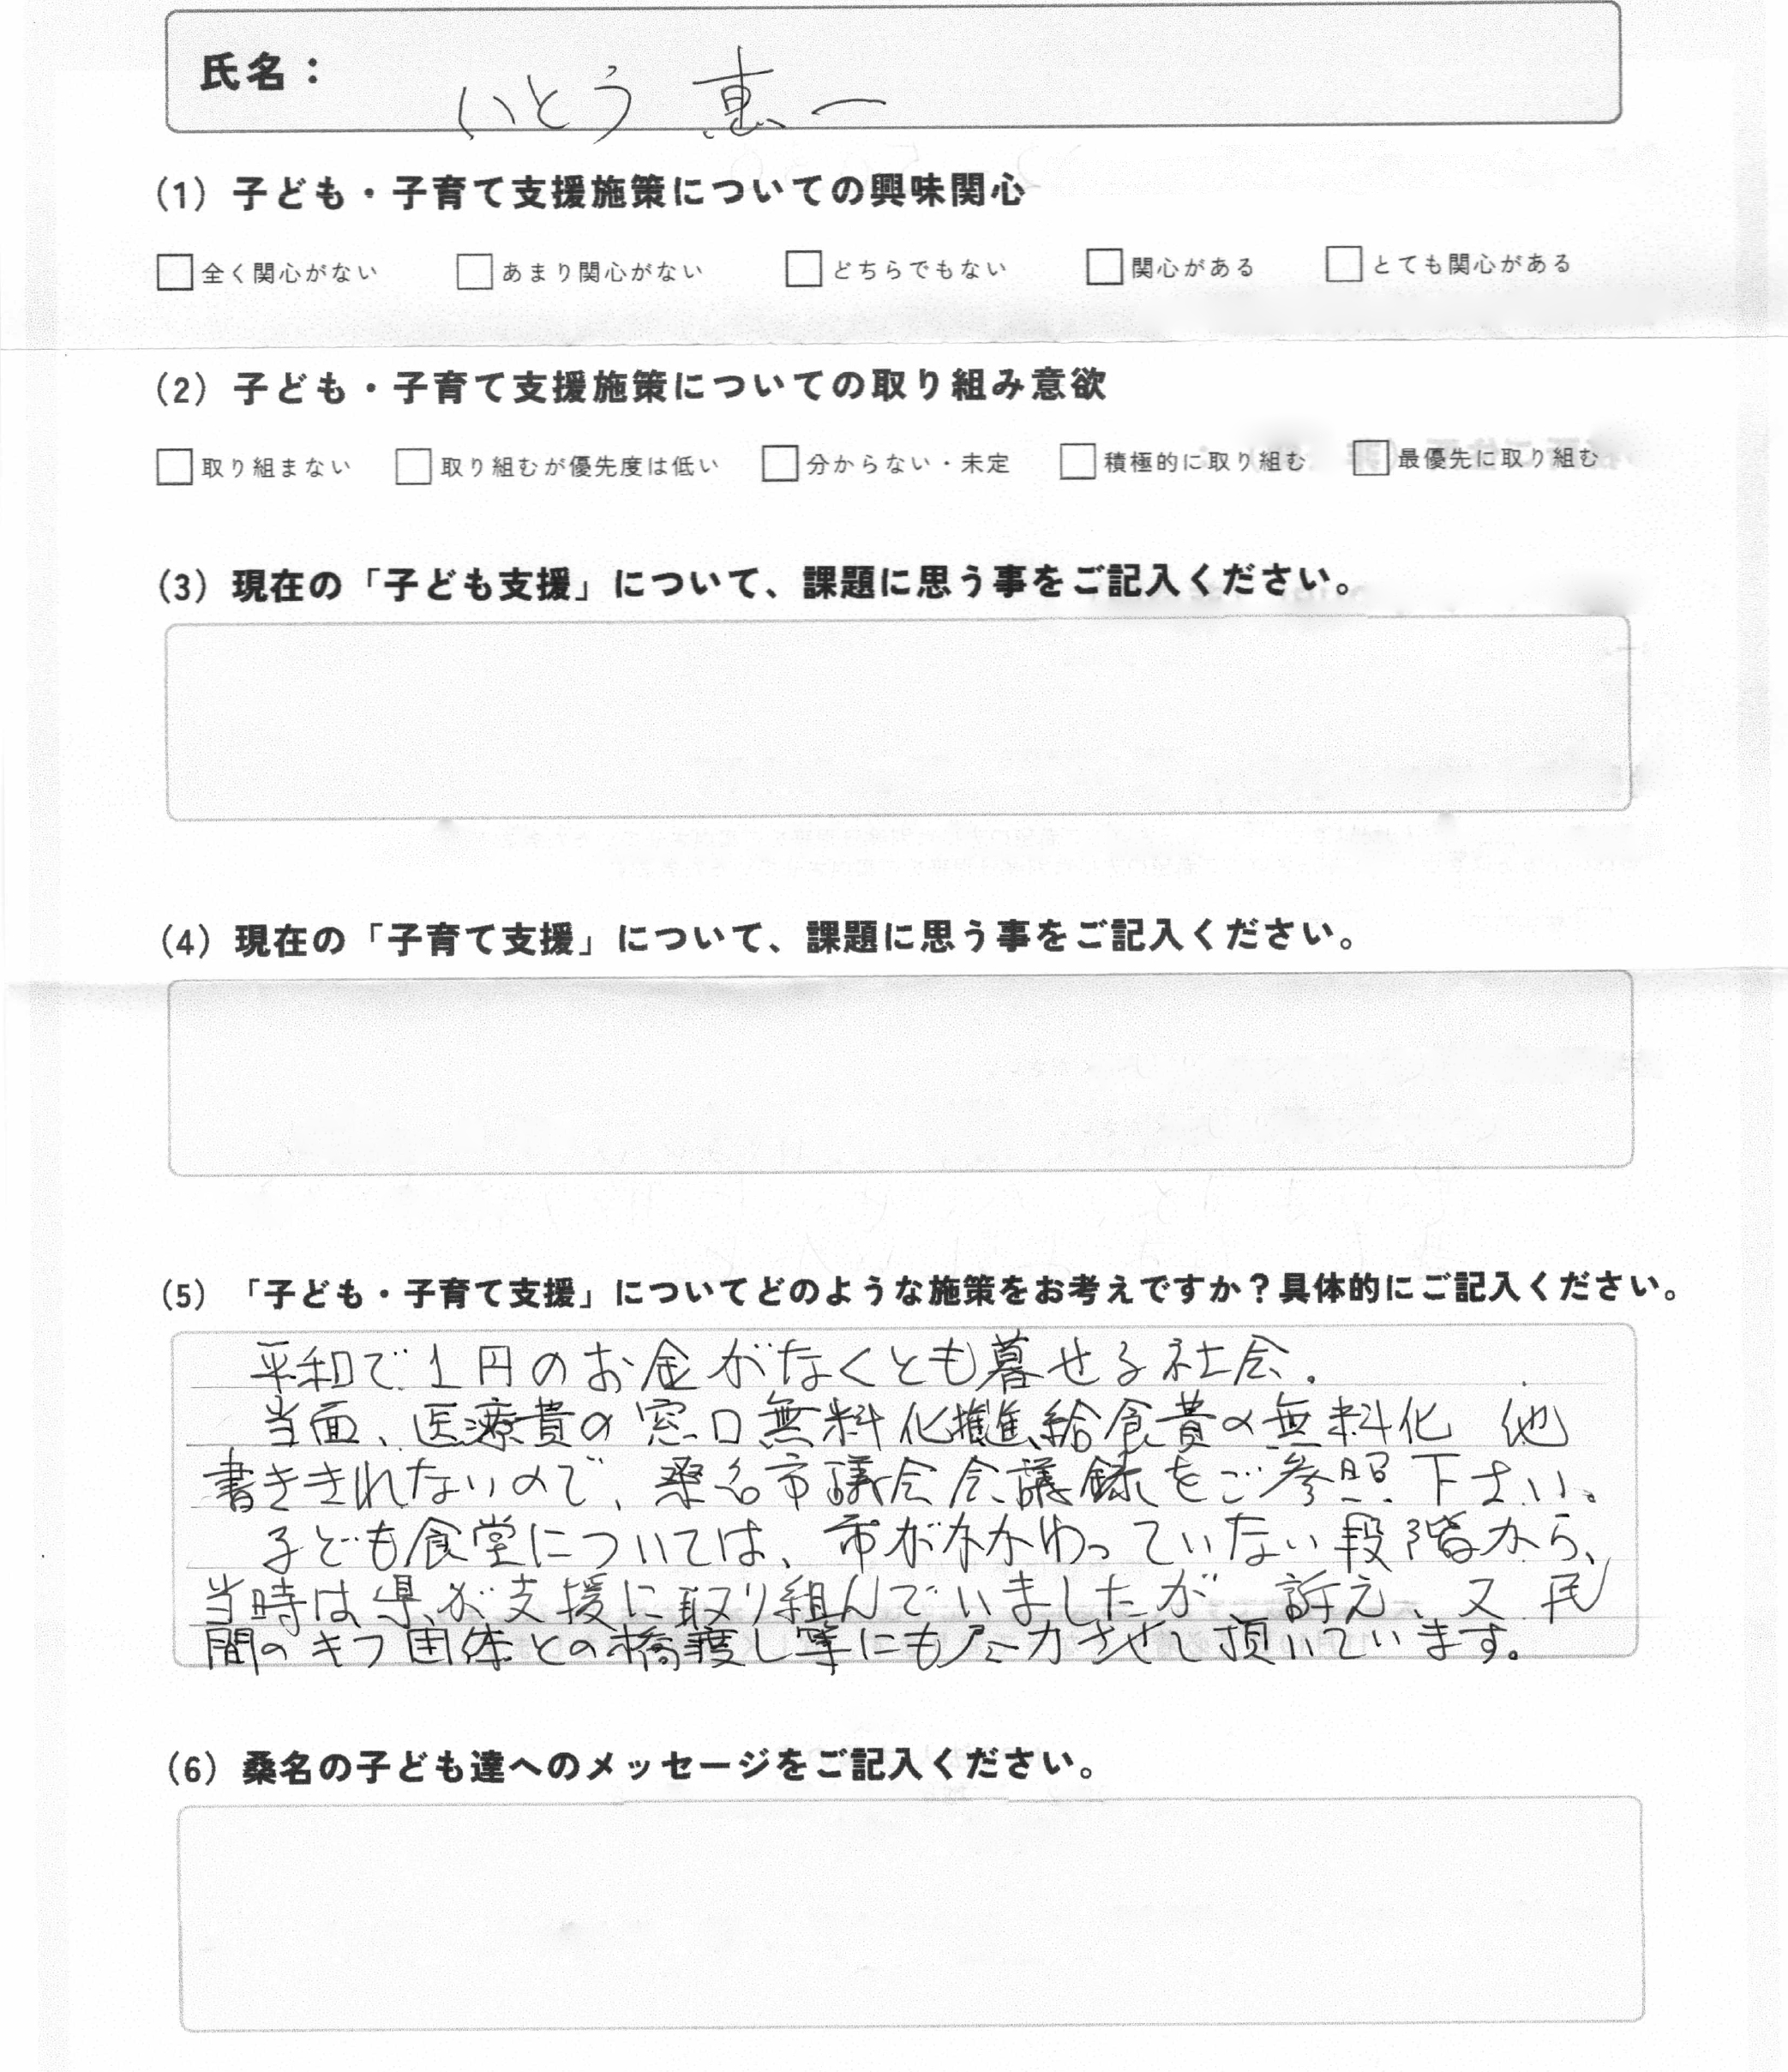 氏名：
いとう 恵一
(1) 子ども・子育て支援施策についての興味関心
□全く関心がない □あまり関心がない □どちらでもない □関心がある □とても関心がある
(2) 子ども・子育て支援施策についての取り組み意欲
□取り組まない □取り組むが優先度は低い □分からない・未定 □積極的に取り組む □最優先に取り組む
(3) 現在の「子ども支援」について、課題に思う事をご記入ください。
(4) 現在の「子育て支援」について、課題に思う事をご記入ください。
(5) 「子ども・子育て支援」についてどのような施策をお考えですか？具体的にご記入ください。
平和で1円のお金がなくとも暮せる社会.
当面、医療費の窓口無料化推進、給食費の無料化 他
書ききれないので、桑名市議会会議録をご参照下さい。
子ども食堂については、市がかかわっていない段階から、
当時は県が支援に取り組んでいましたが、訴え、又 民
間のキフ団体との橋渡し等にも尽力させて頂いています。
(6) 桑名の子ども達へのメッセージをご記入ください。